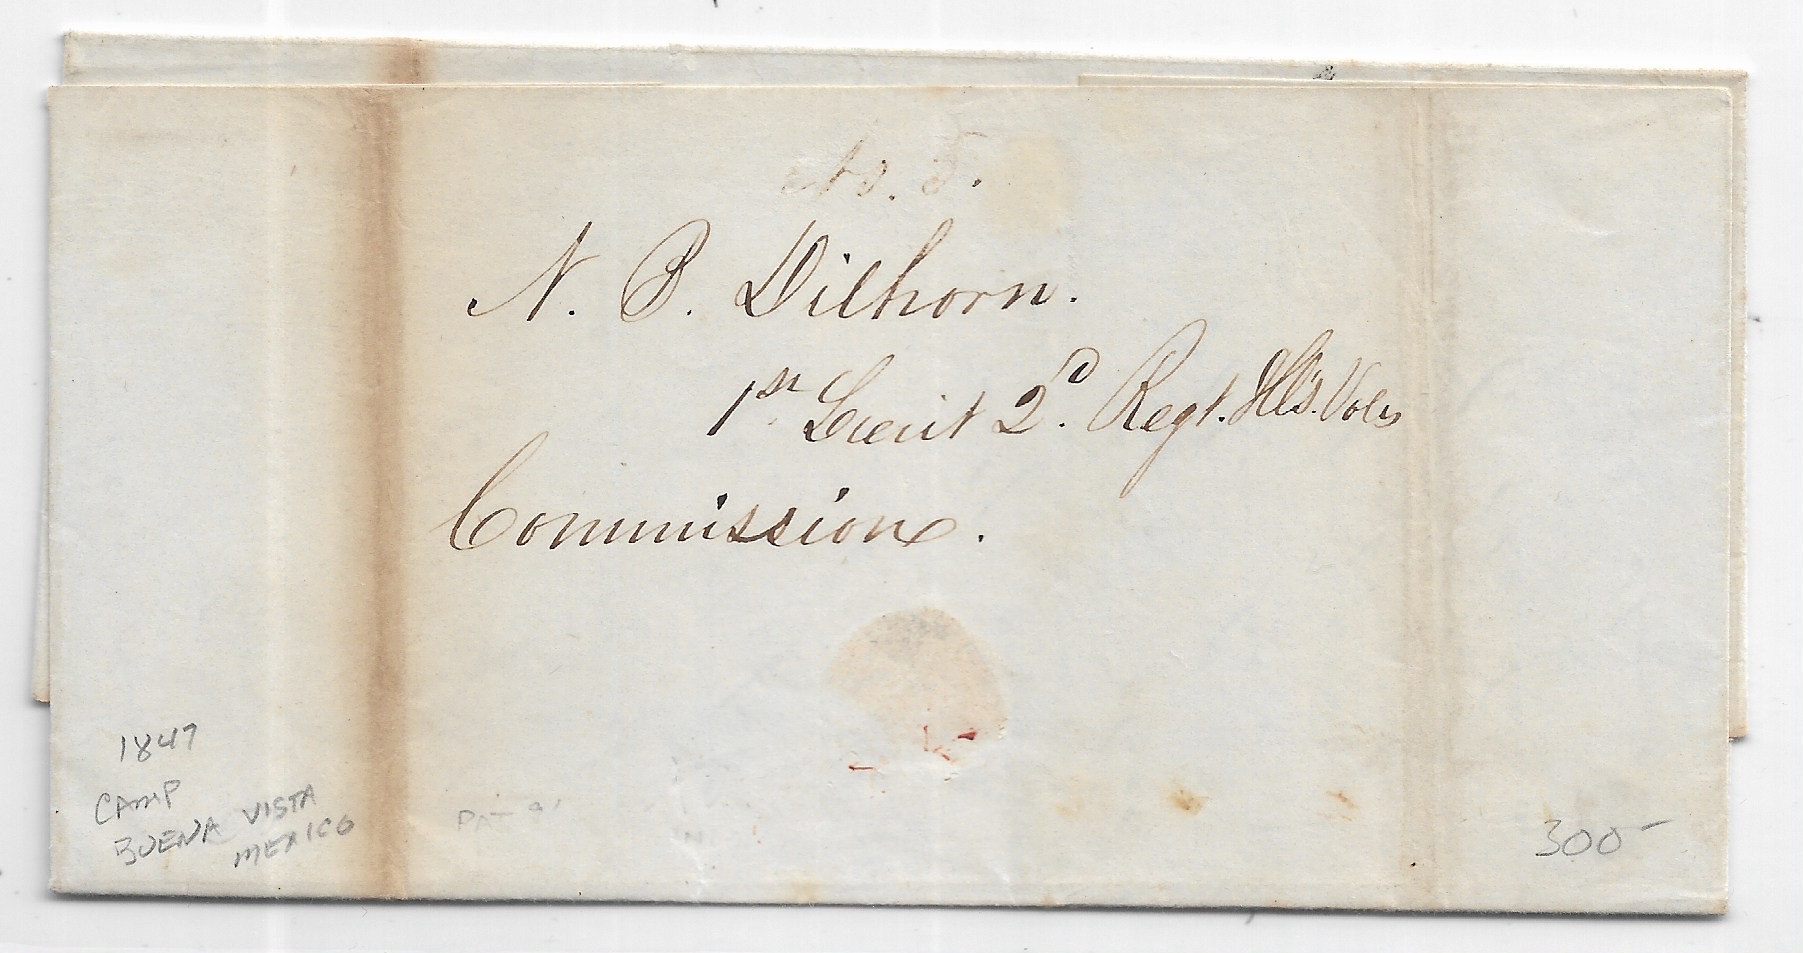 No. 5.
N. B. Dilhorn.
1st Lieut 2d. Regt. Ills. Vols
Commission.
1847
CAMP
BUENA VISTA
MEXICO
300-